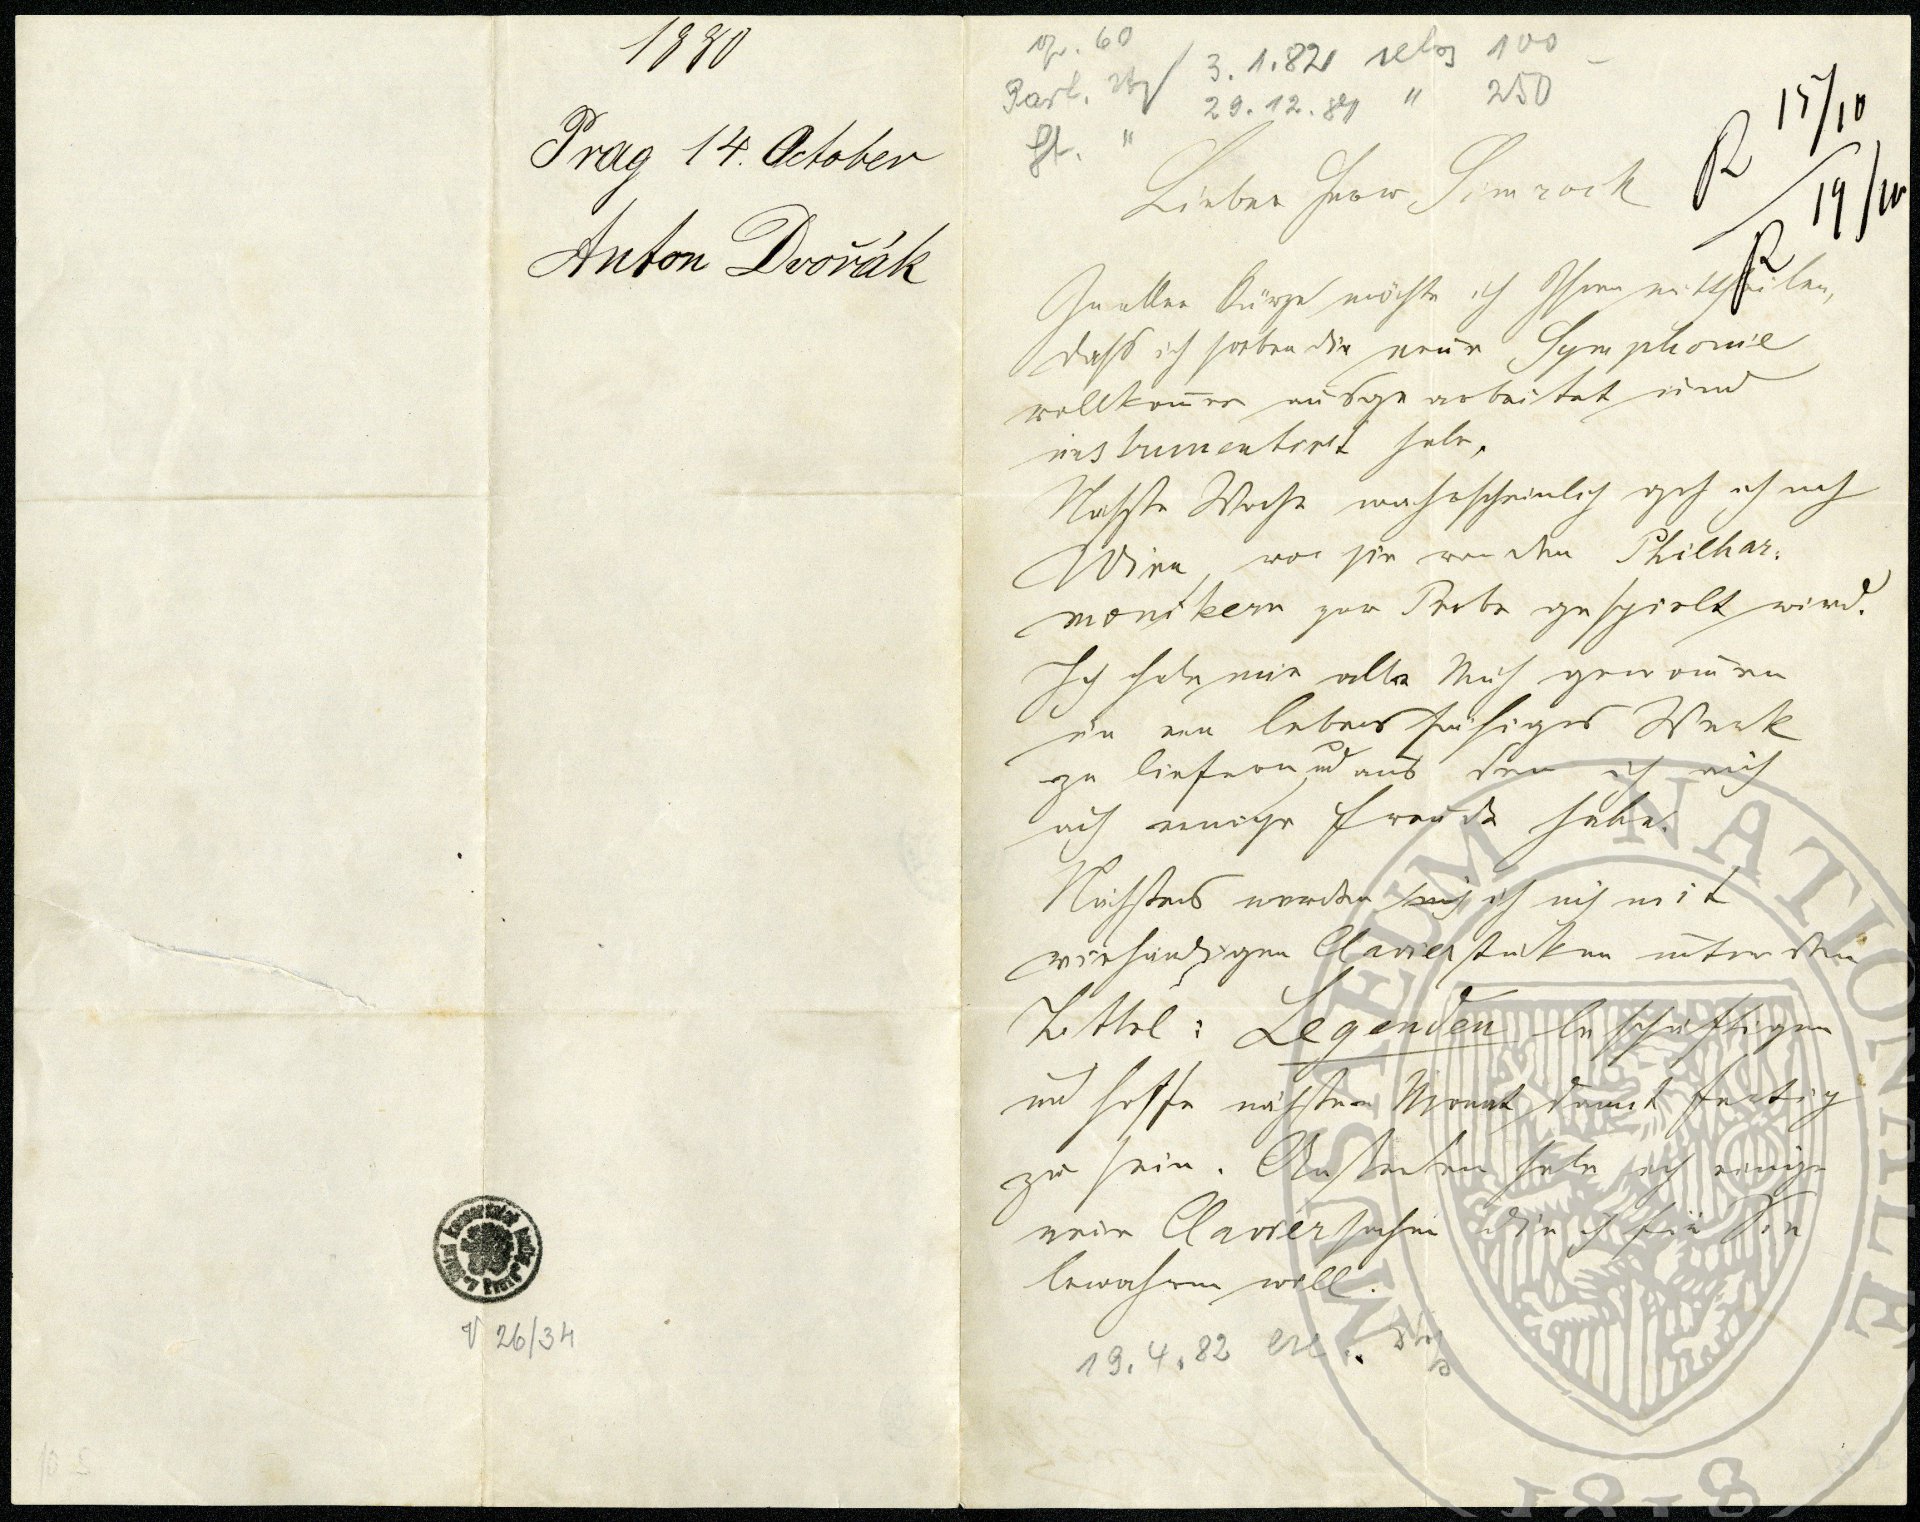 1880
Prag 14. October
Anton Dvořák
V 26/34
op. 60
Part. 3.1.82 100
St. " 29.12.81 " 250
R 15/10
19/10
R
Lieber Herr Simrock
In aller Kürze möchte ich Ihnen mittheilen,
daß ich soeben die neue Symphonie
vollkom̄en ausgearbeitet und
instrumentirt habe.
Nächste Woche wahrscheinlich geh ich nach
Wien, wo sie von den Philhar-
monikern zur Probe gespielt wird.
Ich habe mir alle Müh genom̄en
ein lebensfähiges Werk
zu liefern und aus dem ich auch
einige Freude habe.
Nächstens werde ich mich mit
vierhändigen Clavierstüken unter den
Tittel: Legenden beschäftigen
und hoffe nächsten Monat damit fertig
zu sein. Ansterben habe ich einige
neue Claviersachen die ich für Sie
bewahren will.
19.4.82
MUSAEUM NATIONALE
1818